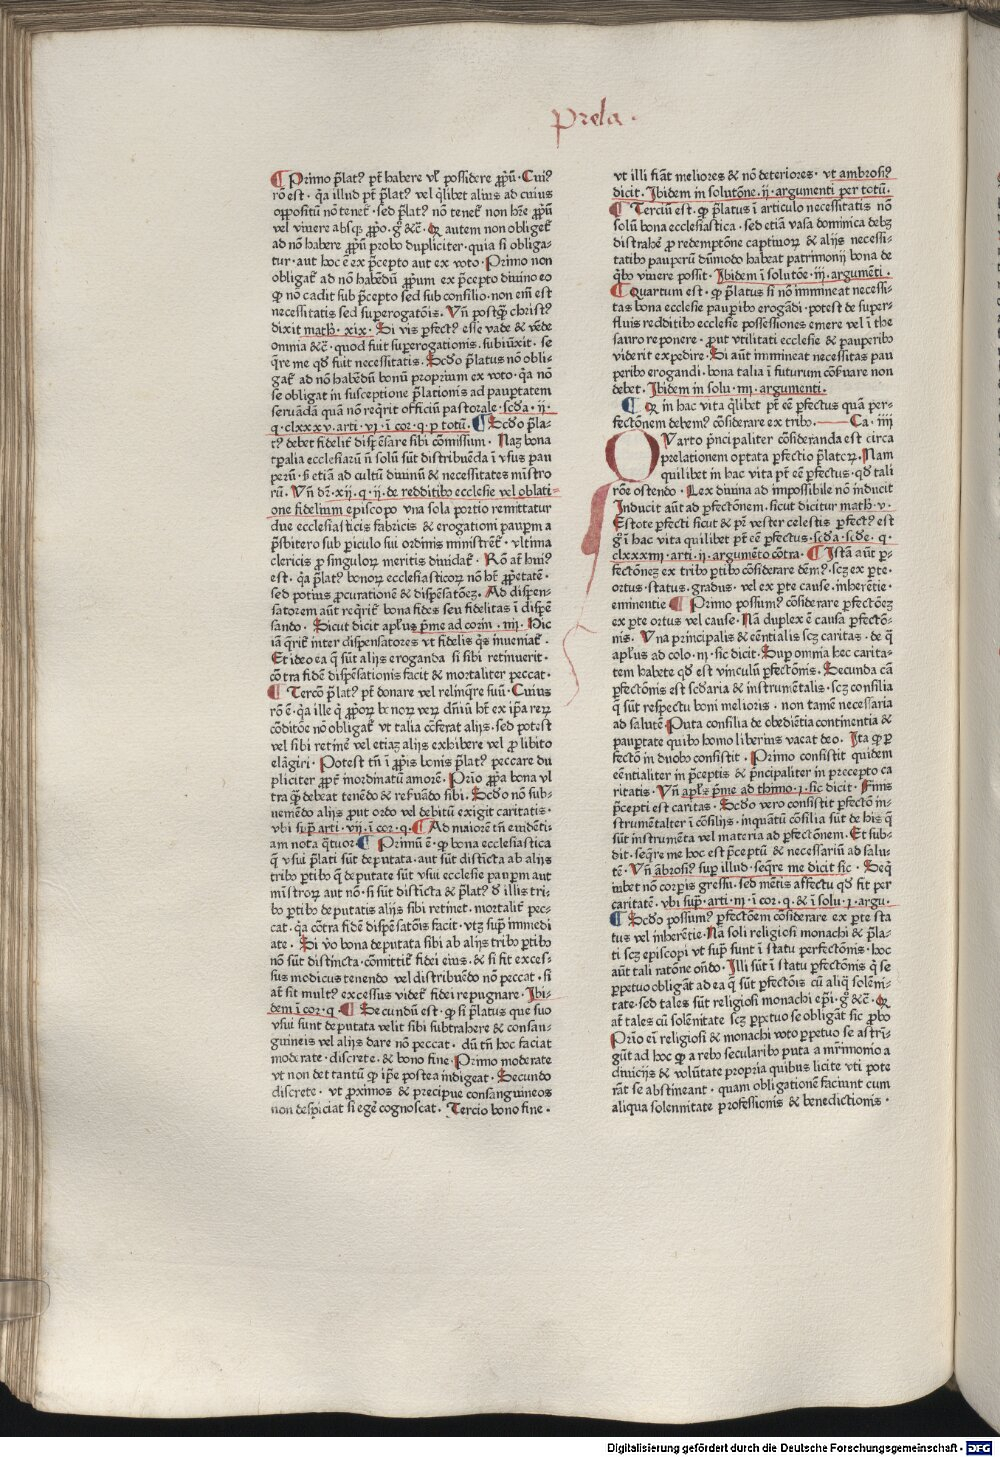 Prela.
¶ Primo p̄lat⁹ pt̄ habere vl̓ possidere ꝓpū· Cui⁹
rō est· q̄a illud pt̄ p̄lat⁹ vel q̄libet alius ad cuius
oppositū nō teneł· sed p̄lat⁹ nō teneł non hr̄e ꝓpū
vel viuere absqꝫ ꝓpo· g̊ &c̄· Q̨ autem non obligeł
ad nō habere ꝓpū probo dupliciter· quia si obliga-
tur· aut hoc ē ex p̄cepto aut ex voto· Primo non
obligał ad nō habēdū ꝓpium ex p̄cepto diuino eo
ꝙ nō cadit sub p̄cepto sed sub consilio· non em̄ est
necessitatis sed suꝑerogatōis· Vn̄ postq̄ȝ christ⁹
dixit math̄· xix· Si vis ꝑfect⁹ esse vade & vēde
omnia &c̄· quod fuit suꝑerogationis· subiūxit· se
q̄re me qd̄ fuit necessitatis· Scd̄o p̄latus nō obli-
gał ad nō habēdū bonū proprium ex voto· q̄a nō
se obligat in susceptione p̄lationis ad pauꝑtatem
seruādā quā nō req̄rit officiū pastorale· scd̄a· ij·
q· clxxxv· arti· vi· ī cor· q· ꝑ totū· ¶ Scd̄o p̄la-
t⁹ debet fidelił disp̄ēsare sibi cōmissum· Naȝ bona
tꝑalia ecclesiarū n̄ solū sūt distribuēda ī vsus pau
perū· s̄ etiā ad cultū diuinū & necessitates mīstro
rū· Vn̄ dr̄· xij· q· ij· de redditibꝰ ecclesie vel oblati-
one fidelium episcopo vna sola portio remittatur
due ecclesiasticis fabricis & erogationi pauꝑum a
p̄sbitero sub ꝑiculo sui ordinis ministrēł· vltima
clericis ꝑ singuloꝝ meritis diuidał· Rō at̄ hui⁹
est· q̄a p̄lat⁹ bonoꝝ ecclesiasticoꝝ nō ht̄ ꝓp̄etatē·
sed potius ꝓcurationē & disp̄ēsatōeȝ· Ad dispen-
satorem aūt req̄rił bona fides seu fidelitas ī disp̄ē
sando· Sicut dicit apl̄us p̄me ad corin· iiij· Hic
iā q̄rił inter dispensatores vt fidelis q̄s inueniał·
Et ideo ea q̄ sūt alijs eroganda si sibi retinuerit·
cōtra fidē disp̄ēsationis facit & mortaliter peccat·
¶ Tercō p̄lat⁹ pt̄ donare vel relinq̄re suū· Cuius
rō ē· q̄a ille q̄ ꝓpoꝝ bonoꝝ veꝝ dn̄iū ht̄ ex ip̄a reꝝ
cōditōe nō obligał vt talia cōferat alijs· sed potest
vel sibi retinē vel etiaȝ alijs exhibere vel ꝓ libito
elāgiri· Potest tn̄ ī ꝓpis bonis p̄lat⁹ peccare du
pliciter ꝓpt̄ inordinatū amorē· Prīo ꝓpa bona vl
tra q̄ȝ debeat tenēdo & reseruādo sibi· Scd̄o nō sub-
ueniēdo alijs ꝓut ordo vel debitū exigit caritatis·
vbi sup̄ arti· vij· ī cor· q· ¶ Ad maiorē tn̄ euidēti-
am nota q̄tuor ¶ Primū ē· ꝙ bona ecclesiastica
q̄ vsui p̄lati sūt deputata· aut sūt distīcta ab alijs
tribꝰ ꝑtibꝰ q̄ deputate sūt vsui ecclesie pauꝑum aut
mīstroꝝ aut nō· si sūt distīcta & p̄lat⁹ d̄ illis tri-
bꝰ ꝑtibꝰ deputatis alijs sibi retinet· mortalił pec-
cat· q̄a cōtra fidē disp̄ēsatōis facit· vtȝ sup̄ immedi
ate· Si v̊o bona deputata sibi ab alijs tribꝰ ꝑtibꝰ
nō sūt distincta· cōmittił fidei eius· & si fit exces-
sus modicus tenendo vel distribuēdo nō peccat· si
at̄ sit mult⁹ excessus videł fidei repugnare· Ibi-
dem ī cor· q· ¶ Secundū est· ꝙ si p̄latus que suo
vsui sunt deputata velit sibi subtrahere & consan-
guineis vel alijs dare nō peccat· dū tn̄ hoc faciat
moderate· discrete· & bono fine· Primo moderate
vt non det tantū ꝙ ip̄e postea indigeat· Secundo
discrete· vt ꝓximos & precipue consanguineos
non despiciat si egē cognoscat· Tercio bono fine·
vt illi fiāt meliores & nō deteriores· vt ambrosi⁹
dicit· Ibidem in solutōne· ij· argumenti per totū·
¶ Terciū est· ꝙ p̄latus ī articulo necessitatis nō
solū bona ecclesiastica· sed etiā vasa dominica debȝ
distrahē ꝓ redemptōne captiuoꝝ & alijs necessi-
tatibꝰ pauperū dūmodo habeat patrimonij bona de
q̄bꝰ viuere possit· Ibidem ī solutōe· iij· argumēti·
¶ Quartum est· ꝙ p̄latus si nō immineat necessi-
tas bona ecclesie pauꝑibꝰ erogādi· potest de super-
fluis redditibꝰ ecclesie possessiones emere vel ī the
sauro reponere· ꝓut vtilitati ecclesie & pauꝑibꝰ
viderit expedire· Si aūt immineat necessitas pau
peribꝰ erogandi· bona talia ī futurum cōseruare non
debet· Ibidem in solu· iiij· argumenti·
¶ Q̨ in hac vita q̄libet pt̄ eē ꝑfectus quā per-
fectōnem debem⁹ cōsiderare ex tribꝰ· Ca· iiij
QVarto p̄ncipaliter cōsideranda est circa
prelationem optata ꝑfectio p̄latoꝝ· Nam
quilibet in hac vita pt̄ eē ꝑfectus· qd̄ tali
rōne ostendo· Lex diuina ad impossibile nō inducit
Inducit aūt ad ꝑfectōnem· sicut dicitur math̄· v·
Estote ꝑfecti sicut & pr̄ vester celestis ꝑfect⁹ est
g̊ ī hac vita quilibet pt̄ eē ꝑfectus· scd̄a· scd̄e· q·
clxxxiiij· arti· ij· argumēto cōtra· ¶ Istā aūt ꝑ-
fectōneȝ ex tribꝰ ꝑtibꝰ cōsiderare dēm⁹· scȝ ex ꝑte·
ortus· status· gradus· vel ex ꝑte cause· inherētie·
eminentie ¶ Primo possum⁹ cōsiderare ꝑfectōeȝ
ex ꝑte ortus vel cause· Nā duplex ē causa ꝑfectō-
nis· Vna principalis & eēntialis scȝ caritas· de q̄
apl̄us ad colo· iij· sic dicit· Suꝑ omnia hec carita-
tem habete qd̄ est vinculū ꝑfectōnis· Secunda cā
ꝑfectōnis est scd̄aria & instrumētalis· scȝ consilia
q̄ sūt respectu boni melioris· non tamē necessaria
ad salutē· Puta consilia de obediētia continentia &
pauꝑtate quibꝰ homo liberius vacat deo· Ita ꝙ ꝑ
fectō in duobꝰ consistit· Primo consistit quidem
eēntialiter in p̄ceptis & p̄ncipaliter in precepto ca
ritatis· Vn̄ apl̄s p̄me ad thimo· j· sic dicit· Finis
p̄cepti est caritas· Scd̄o vero consistit ꝑfectō in-
strumētalter ī cōsilijs· inquātū cōsilia sūt de his q̄
sūt instrumēta vel materia ad ꝑfectōnem· Et sub-
dit· seq̄re me hoc est p̄ceptū & necessariū ad salu-
tē· Vn̄ ābrosi⁹ suꝑ illud· seq̄re me dicit sic· Seq̄
iubet nō corꝑis gressu· sed mētis affectu qd̄ fit per
caritatē· vbi sup̄· arti· iij· ī cor· q· & ī solu· j· argu·
¶ Scd̄o possum⁹ ꝑfectōem cōsiderare ex ꝑte sta
tus vel inherētie· Nā soli religiosi monachi & p̄la-
ti scȝ episcopi vt sup̄ sunt ī statu perfectōnis· hoc
aūt tali ratōne on̄do· Illi sūt ī statu ꝑfectōnis q̄ se
ꝑpetuo obligāt ad ea q̄ sūt ꝑfectōis cū aliq̄ solēni-
tate· sed tales sūt religiosi monachi ep̄i· g̊ &c̄· Q̨
at̄ tales cū solēnitate scȝ ꝑpetuo se obligāt sic ꝓbo
Prīo ei̅ religiosi & monachi voto ꝑpetuo se astrī-
gūt ad hoc ꝙ a rebꝰ secularibꝰ puta a m̄rimonio a
diuicijs & volūtate propria quibus licite vti pote
rāt se abstineant· quam obligationē faciunt cum
aliqua solennitate professionis & benedictionis·
Digitalisierung gefördert durch die Deutsche Forschungsgemeinschaft - DFG